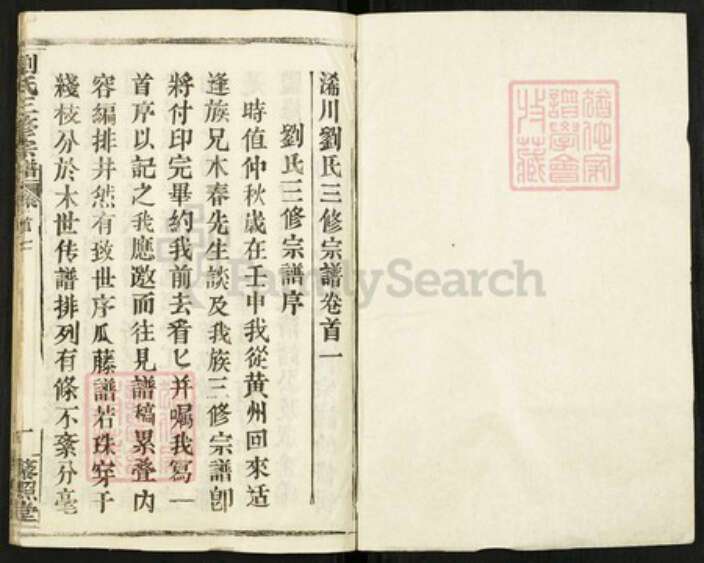 浠川劉氏三修宗譜卷首一
劉氏三修宗譜序
時值仲秋歲在壬申我從黄州回來适
逢族兄木春先生談及我族三修宗譜卽
將付印完畢約我前去看匕并嘱我寫一
首序以記之我應邀而往見譜稿累叠内
容編排井然有致世序瓜藤譜若珠穿于
綫枝分於木世传譜排列有條不紊分毫
劉氏三修宗譜
卷首一
一
藜照堂
猶他家譜學會收藏
FamilySearch